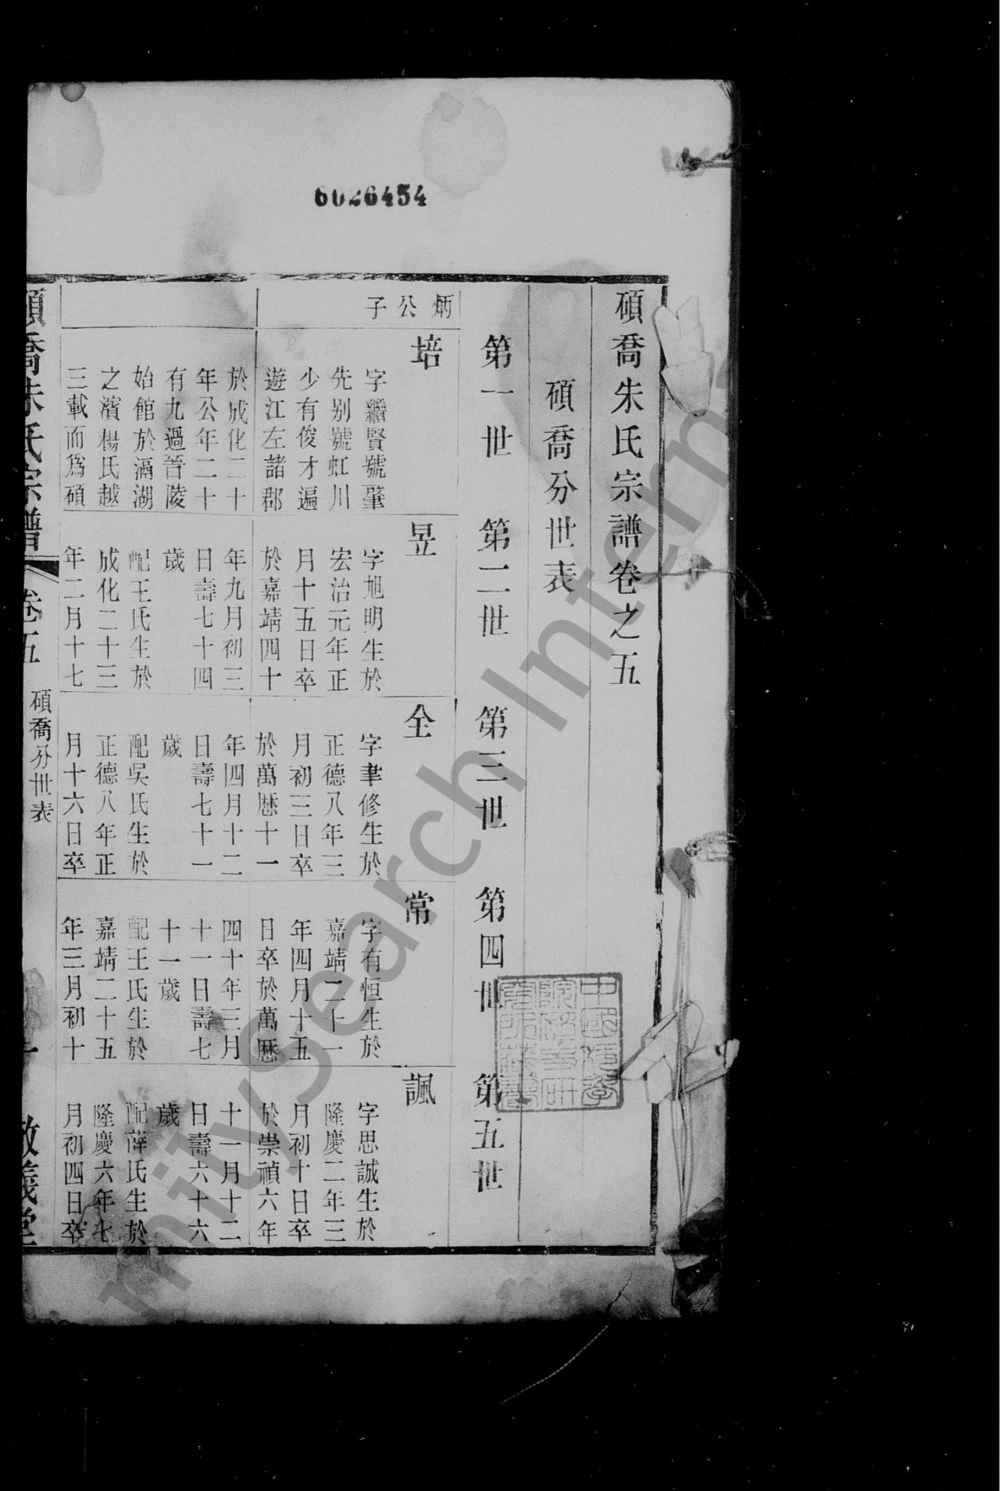 6026454
碩喬朱氏宗譜卷之五
碩喬分世表
第一世
第二世
第三世
第四世
第五世
炳公子
培
字繼賢號肇
先別號虹川
少有俊才遍
遊江左諸郡
於成化二十
年公年二十
有九過晉陵
始館於滆湖
之濱楊氏越
三載而爲碩
昱
字旭明生於
宏治元年正
月十五日卒
於嘉靖四十
年九月初三
日壽七十四
歲
配王氏生於
成化二十三
年二月十七
全
字聿修生於
正德八年三
月初三日卒
於萬歷十一
年四月十二
日壽七十一
歲
配吳氏生於
正德八年正
月十六日卒
常
字有恒生於
嘉靖二十一
年四月十五
日卒於萬歷
四十年三月
十一日壽七
十一歲
配王氏生於
嘉靖二十五
年三月初十
諷
字思誠生於
隆慶二年三
月初十日卒
於崇禎六年
十一月十二
日壽六十六
歲
配薛氏生於
隆慶六年七
月初四日卒
碩喬朱氏宗譜
卷五
碩喬分世表
敦義堂